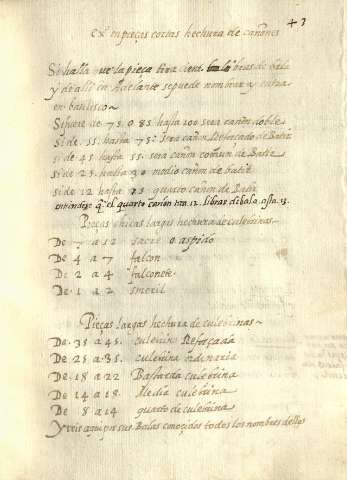 43
En pieças cortas hechura de cañones
Si halla que la pieça tira cient libras de bala
y de alli en adelante se puede nombrar y entra
en basilisco
Si fuere de 75. o 85 hasta 100 sera cañon doble
Si de .55. hasta 75: sera cañon Reforcado de Batir
Si de 45 hasta 55 sera cañon comun de Batir
Si de 25. hasta 30 medio cañon de batir
Si de 12 hasta quarto cañon de Batir
entiendese q el quarto cañon tira 12. libras de bala, asta 15.
Pieças chicas largas hechura de culebrinas
De 7 a 12 sacre o aspido
De 4 a 7 falcon
De 2 a 4 falconete
De 1 a 2 smeril
Pieças largas hechura de culebrinas
De .35 a 45. culebrina Reforçada
De 25 a 35. culebrina ordinaria
De .18 a 22 Bastarda culebrina
De 14 a 18. Media culebrina
De 8 a 14 quarto de culebrina
Y veis aqui por sus Balas conoçidos todos los nombres dellos